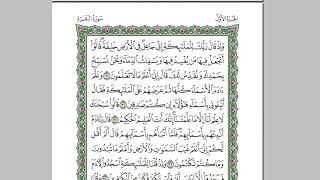 الجزء الأول سورة البقرة
وَإِذْ قَالَ رَبُّكَ لِلْمَلَٰٓئِكَةِ إِنِّي جَاعِلٌ فِي ٱلْأَرْضِ خَلِيفَةً قَالُوٓا۟
أَتَجْعَلُ فِيهَا مَن يُفْسِدُ فِيهَا وَيَسْفِكُ ٱلدِّمَآءَ وَنَحْنُ نُسَبِّحُ
بِحَمْدِكَ وَنُقَدِّسُ لَكَ قَالَ إِنِّيٓ أَعْلَمُ مَا لَا تَعْلَمُونَ ٣٠ وَعَلَّمَ
ءَادَمَ ٱلْأَسْمَآءَ كُلَّهَا ثُمَّ عَرَضَهُمْ عَلَى ٱلْمَلَٰٓئِكَةِ فَقَالَ
أَنۢبِـُٔونِي بِأَسْمَآءِ هَٰٓؤُلَآءِ إِن كُنتُمْ صَٰدِقِينَ ٣١ قَالُوا۟ سُبْحَٰنَكَ
لَا عِلْمَ لَنَآ إِلَّا مَا عَلَّمْتَنَآ إِنَّكَ أَنتَ ٱلْعَلِيمُ ٱلْحَكِيمُ ٣٢ قَالَ يَٰٓـَٔادَمُ
أَنۢبِئْهُم بِأَسْمَآئِهِمْ فَلَمَّآ أَنۢبَأَهُم بِأَسْمَآئِهِمْ قَالَ أَلَمْ أَقُل
لَّكُمْ إِنِّيٓ أَعْلَمُ غَيْبَ ٱلسَّمَٰوَٰتِ وَٱلْأَرْضِ وَأَعْلَمُ مَا تُبْدُونَ
وَمَا كُنتُمْ تَكْتُمُونَ ٣٣ وَإِذْ قُلْنَا لِلْمَلَٰٓئِكَةِ ٱسْجُدُوا۟ لِءَادَمَ